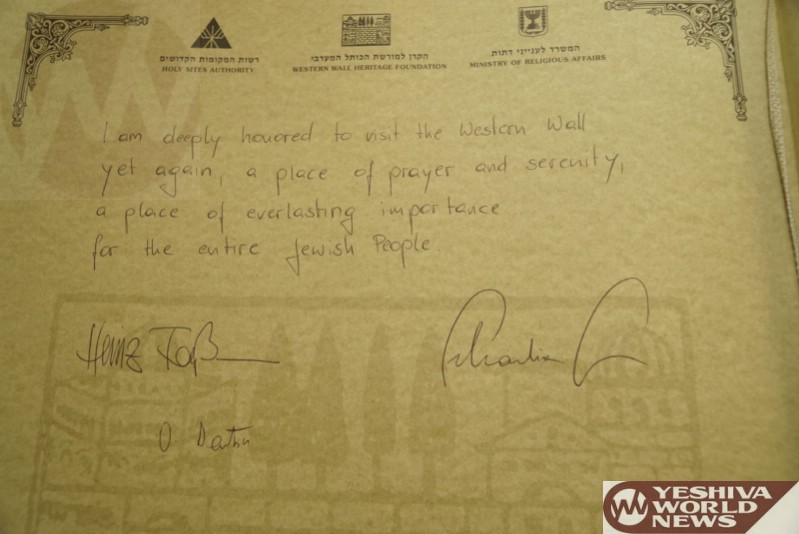 רשות המקומות הקדושים
HOLY SITES AUTHORITY
הקרן למורשת הכותל המערבי
WESTERN WALL HERITAGE FOUNDATION
המשרד לענייני דתות
MINISTRY OF RELIGIOUS AFFAIRS
I am deeply honored to visit the Western Wall
yet again, a place of prayer and serenity,
a place of everlasting importance
for the entire Jewish People.
Heinz
YESHIVA
WORLD
NEWS